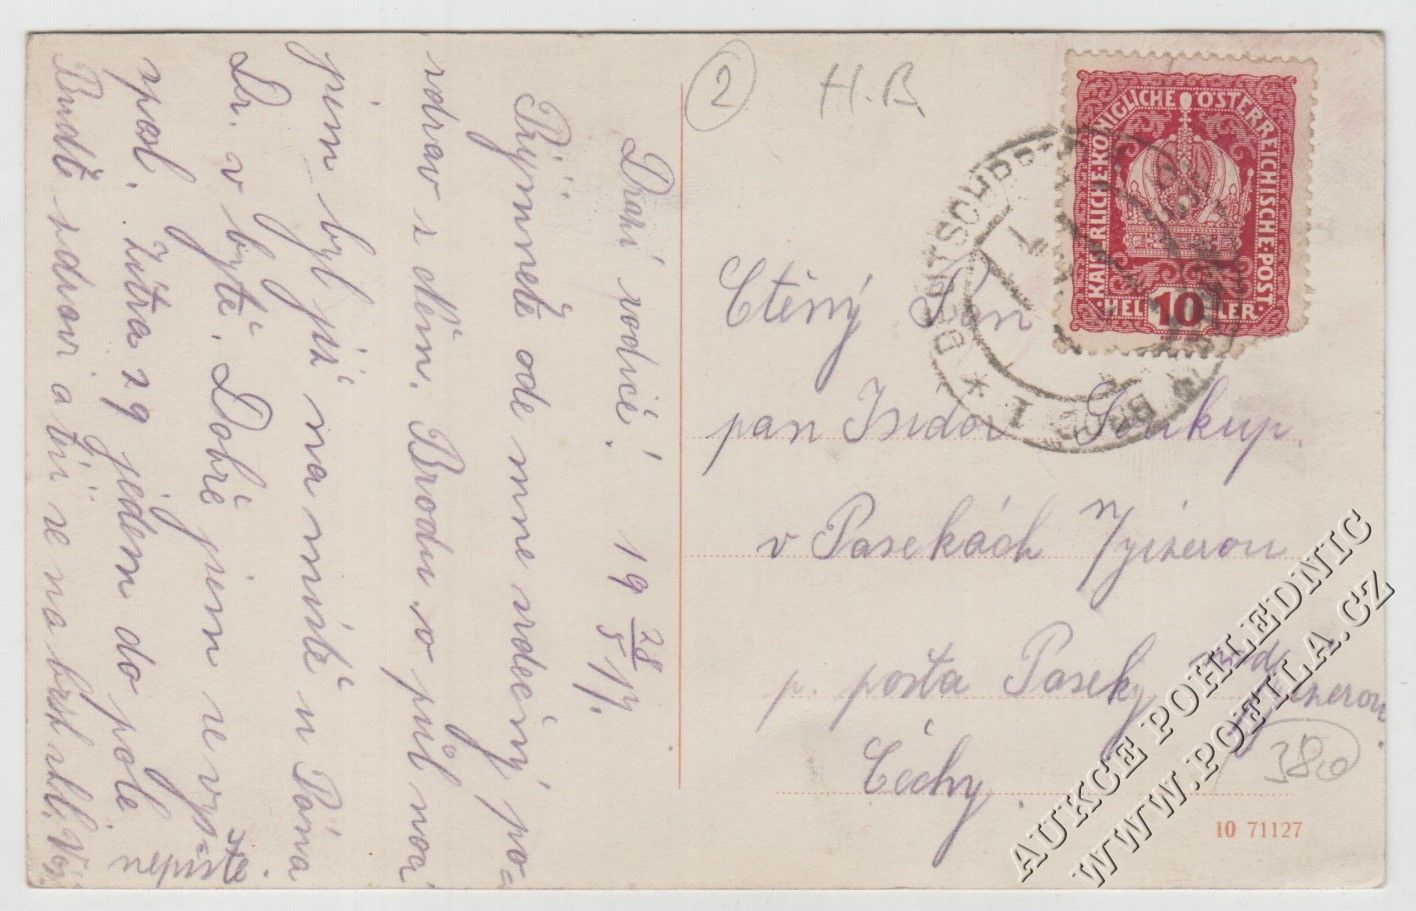 Drazí rodiče! 19 28/5 17.
Přijmněte ode mne srdečný po=
zdrav z Něm. Brodu. o půl noci
jsem byl již na místě u Pána
Dr. v bytě. Dobře jsem se vyp=
spal. Zítra 29 jedem do pole
nepište.
Buďte zdrávi a těší se na
2
H.B.
KAISERLICHE·KÖNIGLICHE ÖSTERREICHISCHE·POST·
HELLER
10
DEUTSCHBROD 1
Ctěný Pán
pan Isidor Soukup.
v Pasekách n/Jizerou
p. pošta Paseky nad
Jizerou
Čechy.
380
10 71127
AUKCE POHLEDNIC
WWW.POETLA.CZ